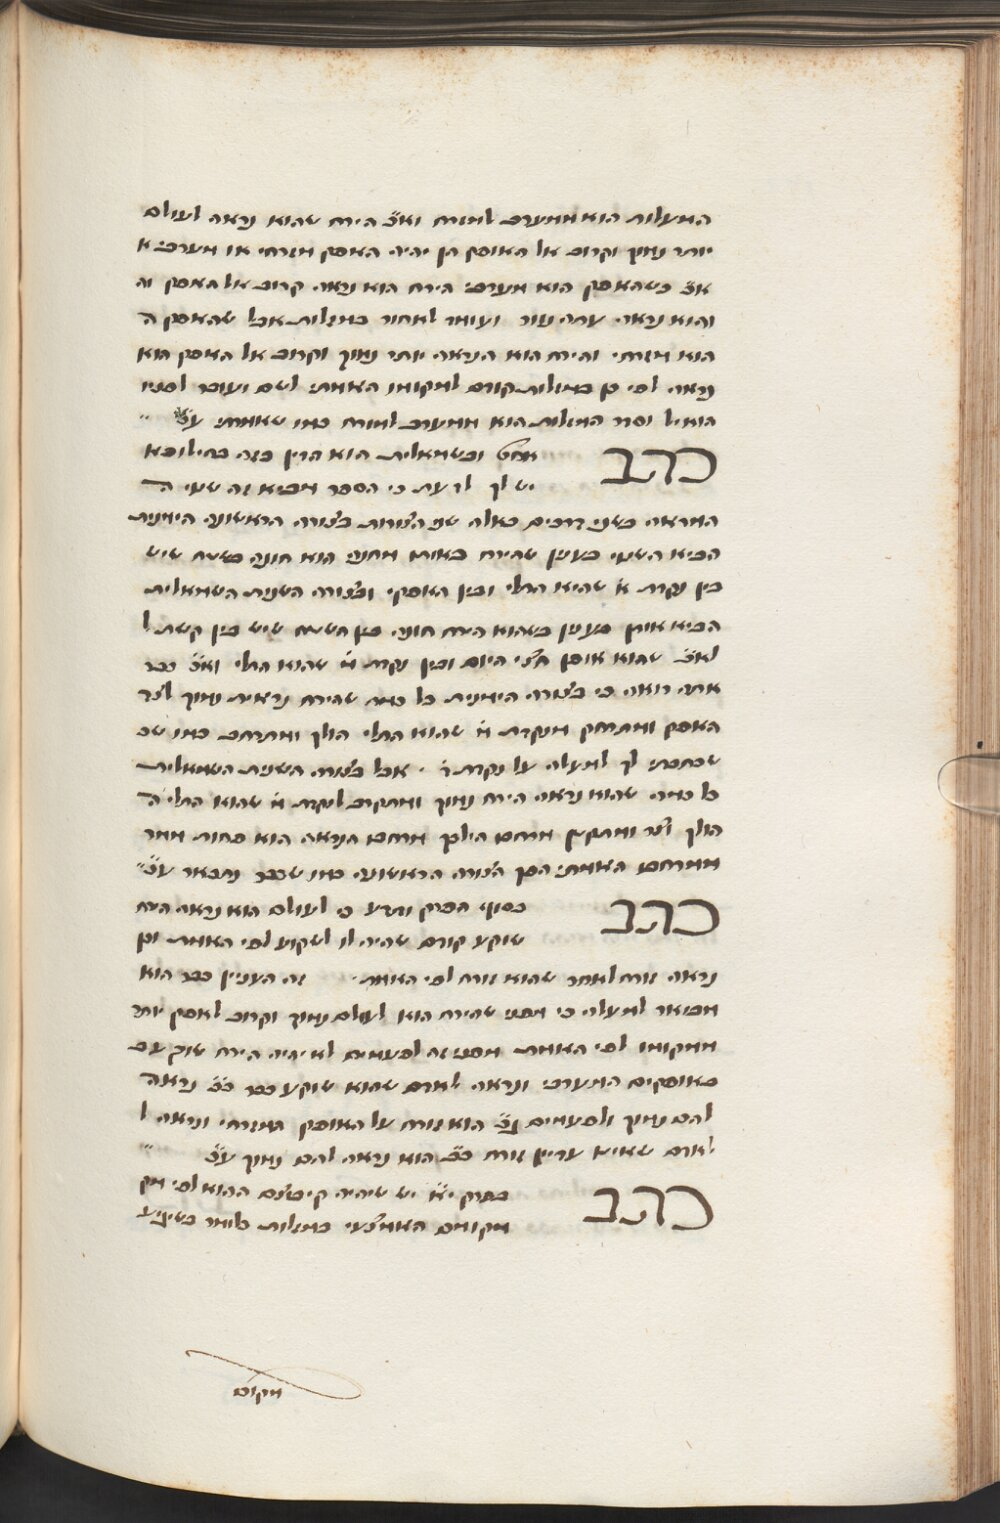 המעלות הוא ממערב למזרח ואצ הירח שהוא נראה לעולם
יותר נמוך וקרוב אל האופק הן יהיה האופק מזרחי או מערבי א
אצ כשהאופק הוא מערבי הירח הוא נראה קרוב אל האפק וה
והוא נראה עתה עוד ועומד לאחור במזלות אבל שהאפק ה
הוא מזרחי והירח הוא הנראה יותר נמוך וקרוב אל האפק הוא
נראה לפי כן במזלות קודם למקומו האמתי לשם ועובר לפניו
הואיל וסדר המזלות הוא ממערב למזרח כמו שאמרתי
כתב וכשמאלית הוא הדין בזה בחילופא
יש לך לדעת כי הספר מביא זה שנוי ה
המראה בשני דרכים באלה שני הצורות בצורה הראשונה הימנית
הביא השנוי בענין שהירח באותו מחנה הוא חונה בשטח שיש
בין נקדת א שהיא התלי ובין האפקי ובצורה השנית השמאלית
הביא אותו בענין כשהוא הירח חונה בין השטח שיש בין קשת ל
לאצ שהוא אופן חצי היום ובין נקדת א שהוא התלי ואצ כבר
אתה רואה כי בצורה הימנית כל כמה שהירח נראית נמוך לצד
האפק ומתרחק מנקדת א שהוא התלי הולך ומתרחב כמו שכ
שכתבתי לך למעלה על נקדת אבל בצורה השנית השמאלית
כל כמה שהוא נראה הירח נמוך ומתקרב לנקדת א שהוא התלי ה
הולך וצר ומתקצץ מרחבו הילכך מרחבו הנראה הוא פחות מתר
ממרחבו האמתי הפך הצורה הראשונה כמו שכבר נתבאר
כתב בסוף הפרק ונדע כי לעולם הוא נראה הירח
שוקע קודם שהיה לו לשקוע לפי האמת וכן
נראה זורח לאחר שהוא זורח לפי האמת זה הענין כבר הוא
מבואר למעלה כי מפני שהירח הוא לעולם נמוך וקרוב לאפק יותר
ממקומו לפי האמת מפני זה לפעמים לא יהיה הירח שוקע עם
באופקים המערבי ונראה לאדם שהוא שוקע כבר נראה
להם נמוך ולפעמים הוא זורח על האופק המזרחי ונראה ל
לאדם שאינו עדיין זורח הוא נראה להם נמוך
כתב בפרק יא יש שיהיה קיבוצם ההוא לפי מק
מקומם האמצעי במזלות כלומר
מקום